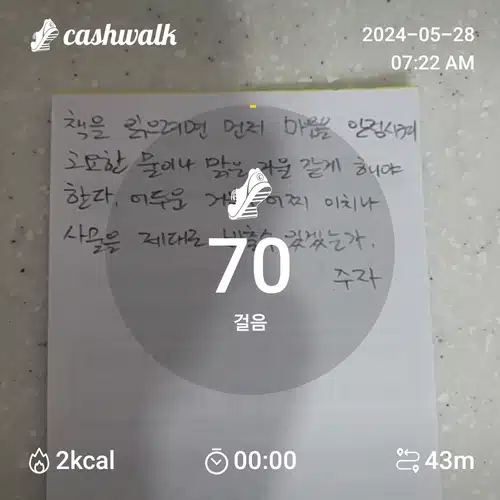 cashwalk
2024-05-28
07:22 AM
책을 읽으려면 먼저 마음을 안정시켜
고요한 물이나 맑은 거울 같게 해야
한다. 어두운 어찌 이치나
사물을 제대로 있겠는가.
주자
70
걸음
2kcal
00:00
43m